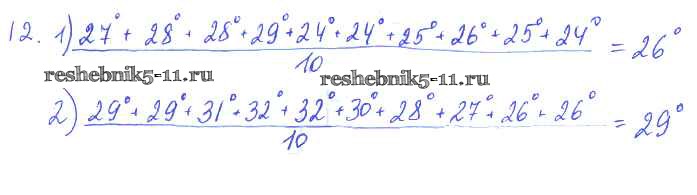 12. 1) 27° + 28° + 28° + 29° + 24° + 24° + 25° + 26° + 25° + 24° = 26°
10
reshebnik5-11.ru reshebnik5-11.ru
2) 29° + 29° + 31° + 32° + 32° + 30° + 28° + 27° + 26° + 26° = 29°
10